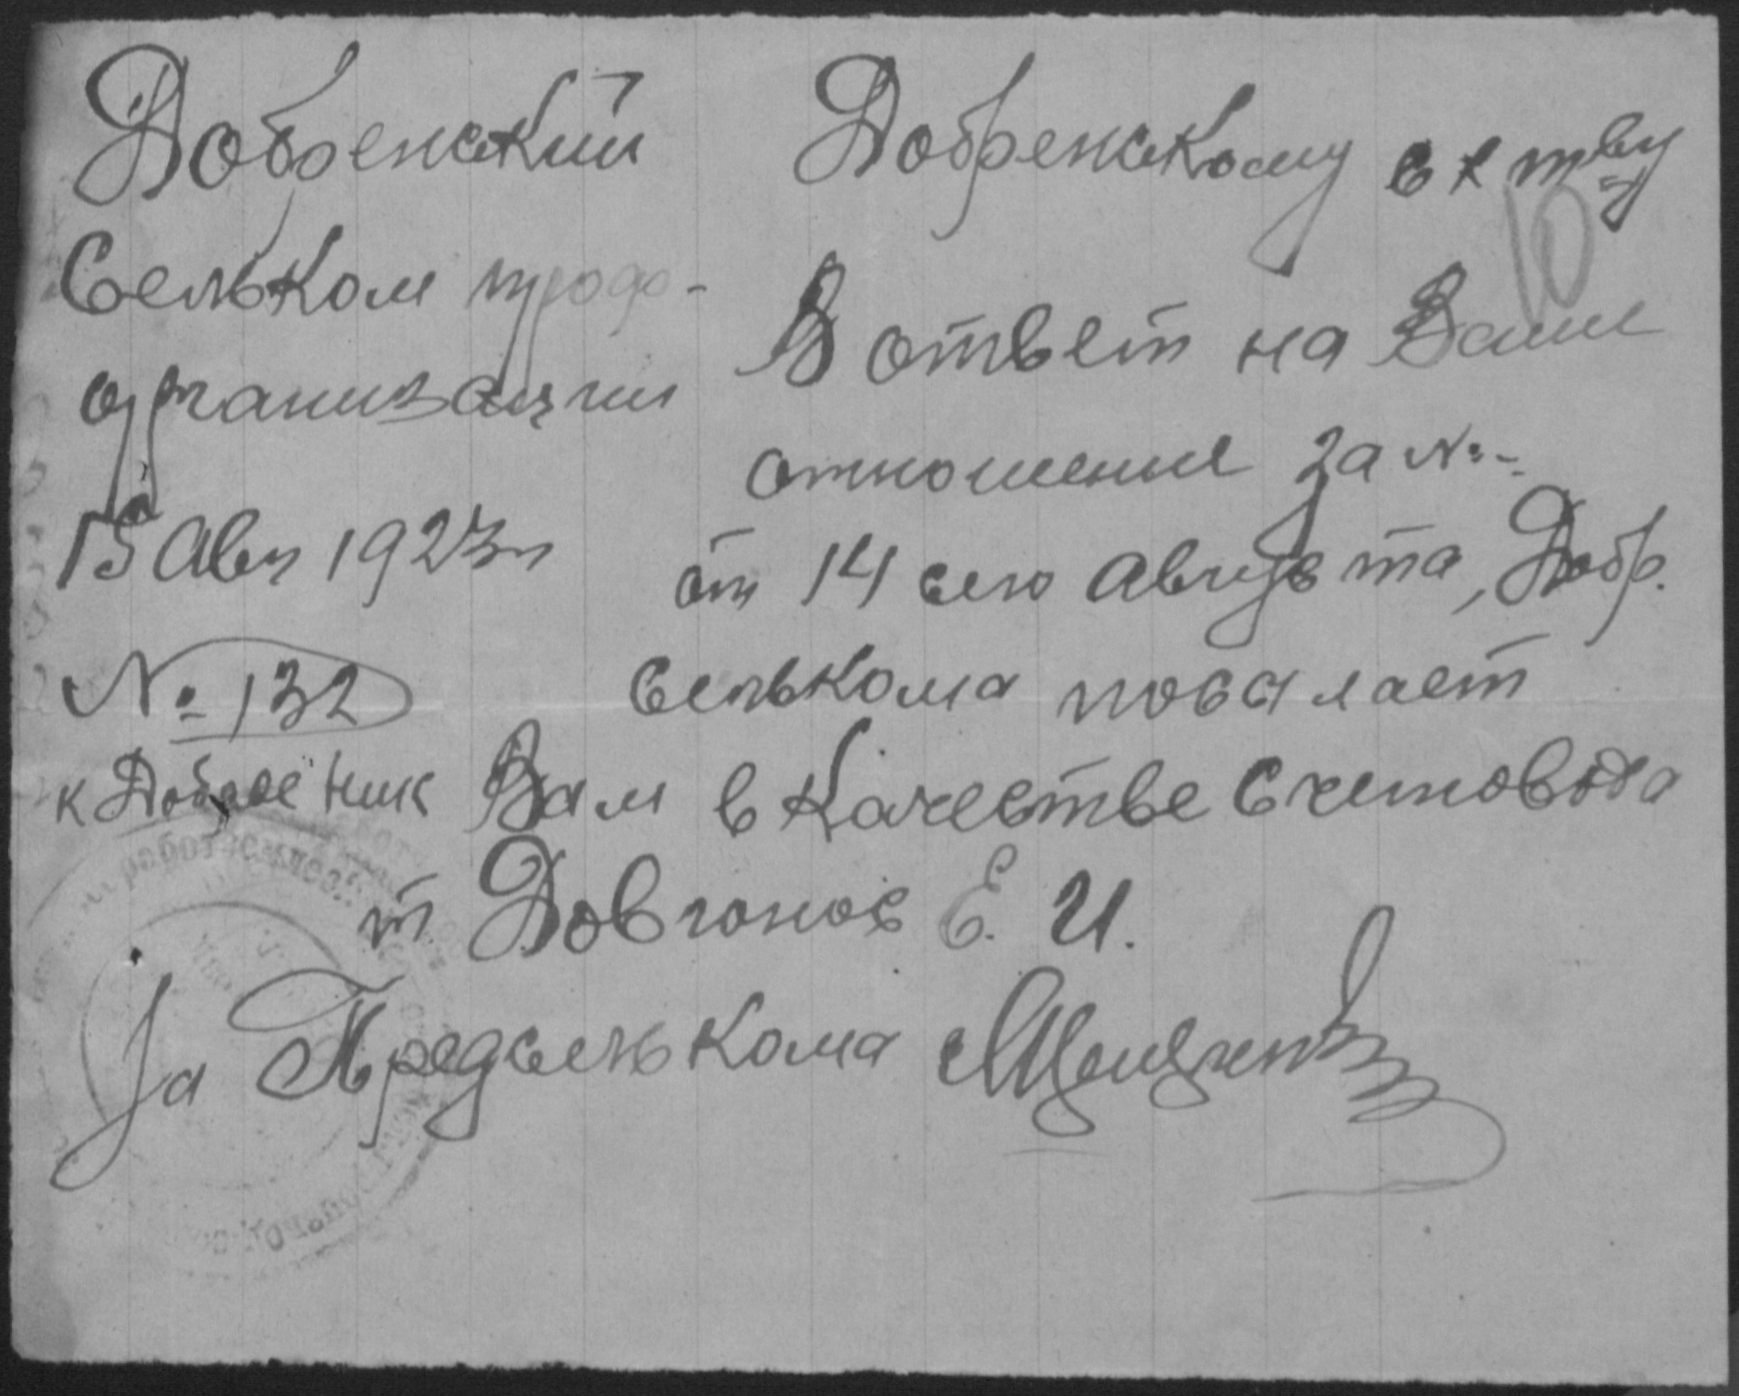 Добренский
Сельком проф-
организации
15 Авг 1923 г
№ 132
к Доброе Ник
Добренскому с х тву
10
В ответ на Ваше
отношение за № -
от 14 сего Августа, Добр.
Селькома посылает
Вам в качестве счетовода
т. Довгонос Е. И.
За Предселькома